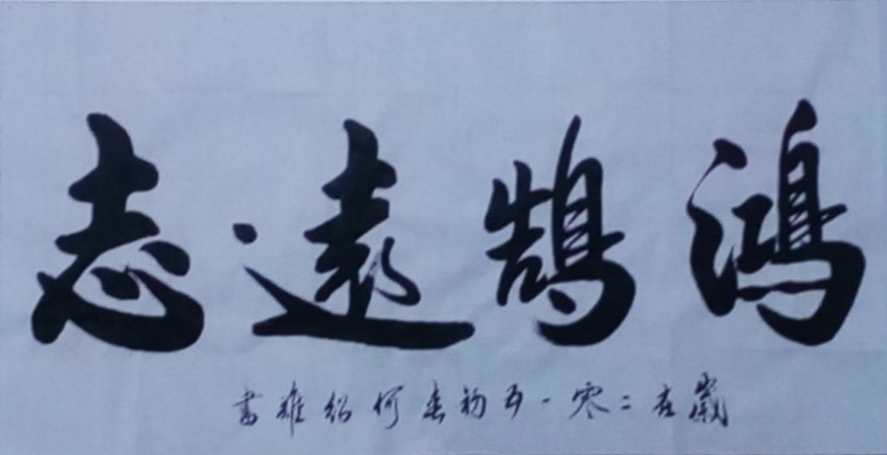 鴻鵠遠志
歲在二零一五初春何紹雄書